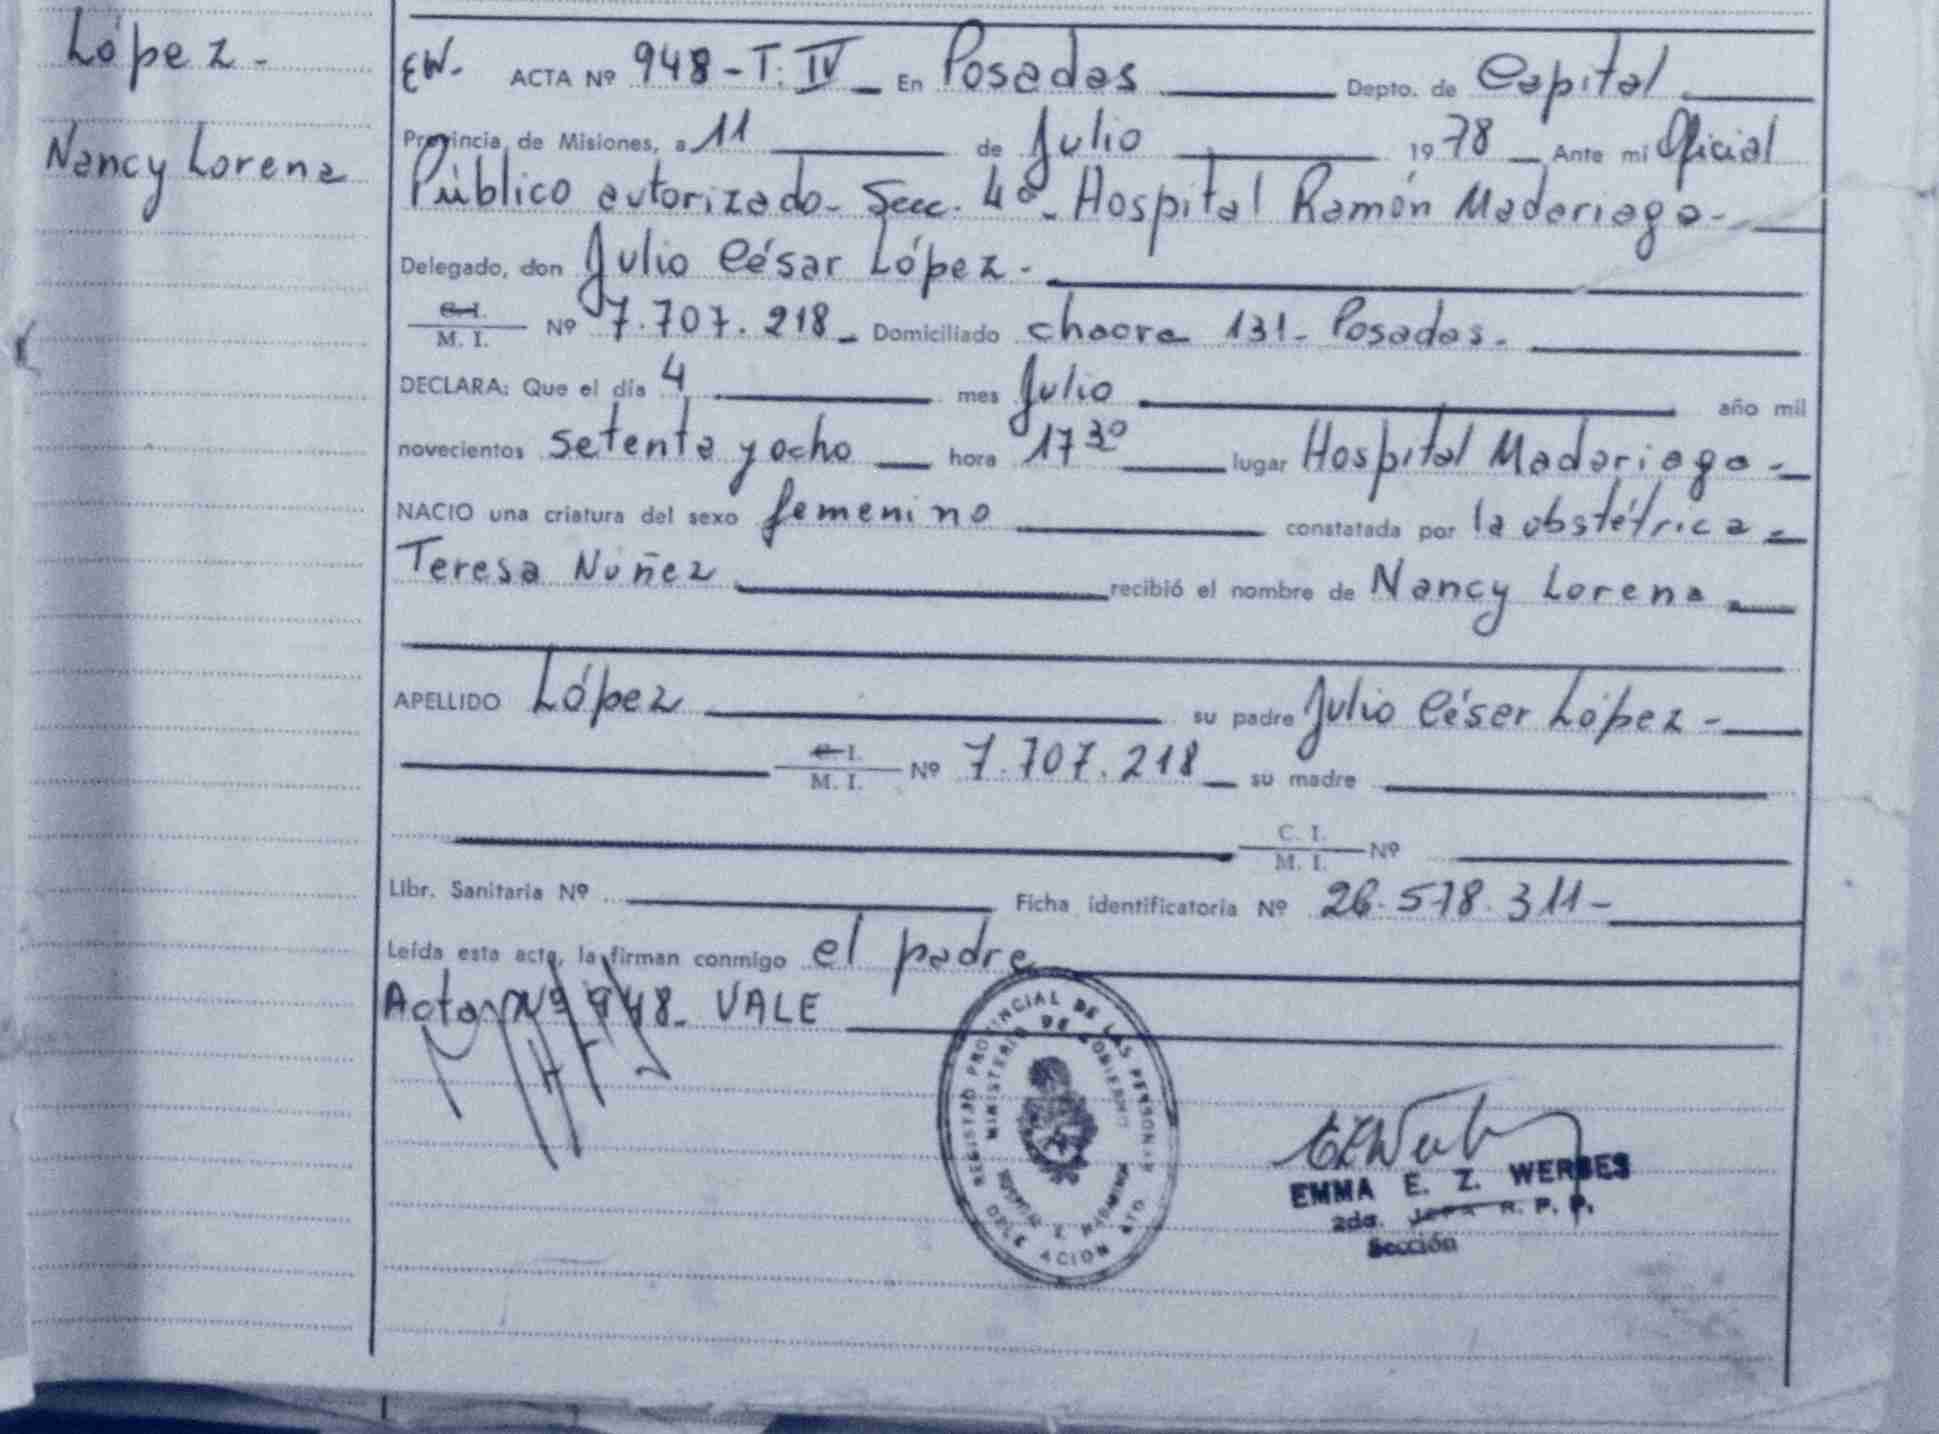 López-
Nancy Lorena
EW. ACTA Nº 948-T. IV En Posadas Depto. de Capital
Provincia de Misiones, a 11 de Julio 1978 Ante mi Oficial
Público autorizado- Secc. 4ª- Hospital Ramón Madariaga-
Delegado, don Julio César López-
C.I.
M. I. Nº 7.707.218 Domiciliado chacra 131- Posadas-
DECLARA: Que el día 4 mes Julio año mil
novecientos setenta y ocho hora 17 30 lugar Hospital Madariaga-
NACIO una criatura del sexo femenino constatada por la obstétrica-
Teresa Núñez recibió el nombre de Nancy Lorena
APELLIDO López su padre Julio César López-
C.I.
M. I. Nº 7.707.218 su madre
C. I.
M. I. Nº
Libr. Sanitaria Nº Ficha identificatoria Nº 26.578.311-
Leída esta acta, la firman conmigo el padre
Acta Nº 948- VALE
REGISTRO PROVINCIAL DE LAS PERSONAS
MINISTERIO DE GOBIERNO
DELEGACION
EMMA E. Z. WERBES
2da. Jefa R. P. P.
Sección